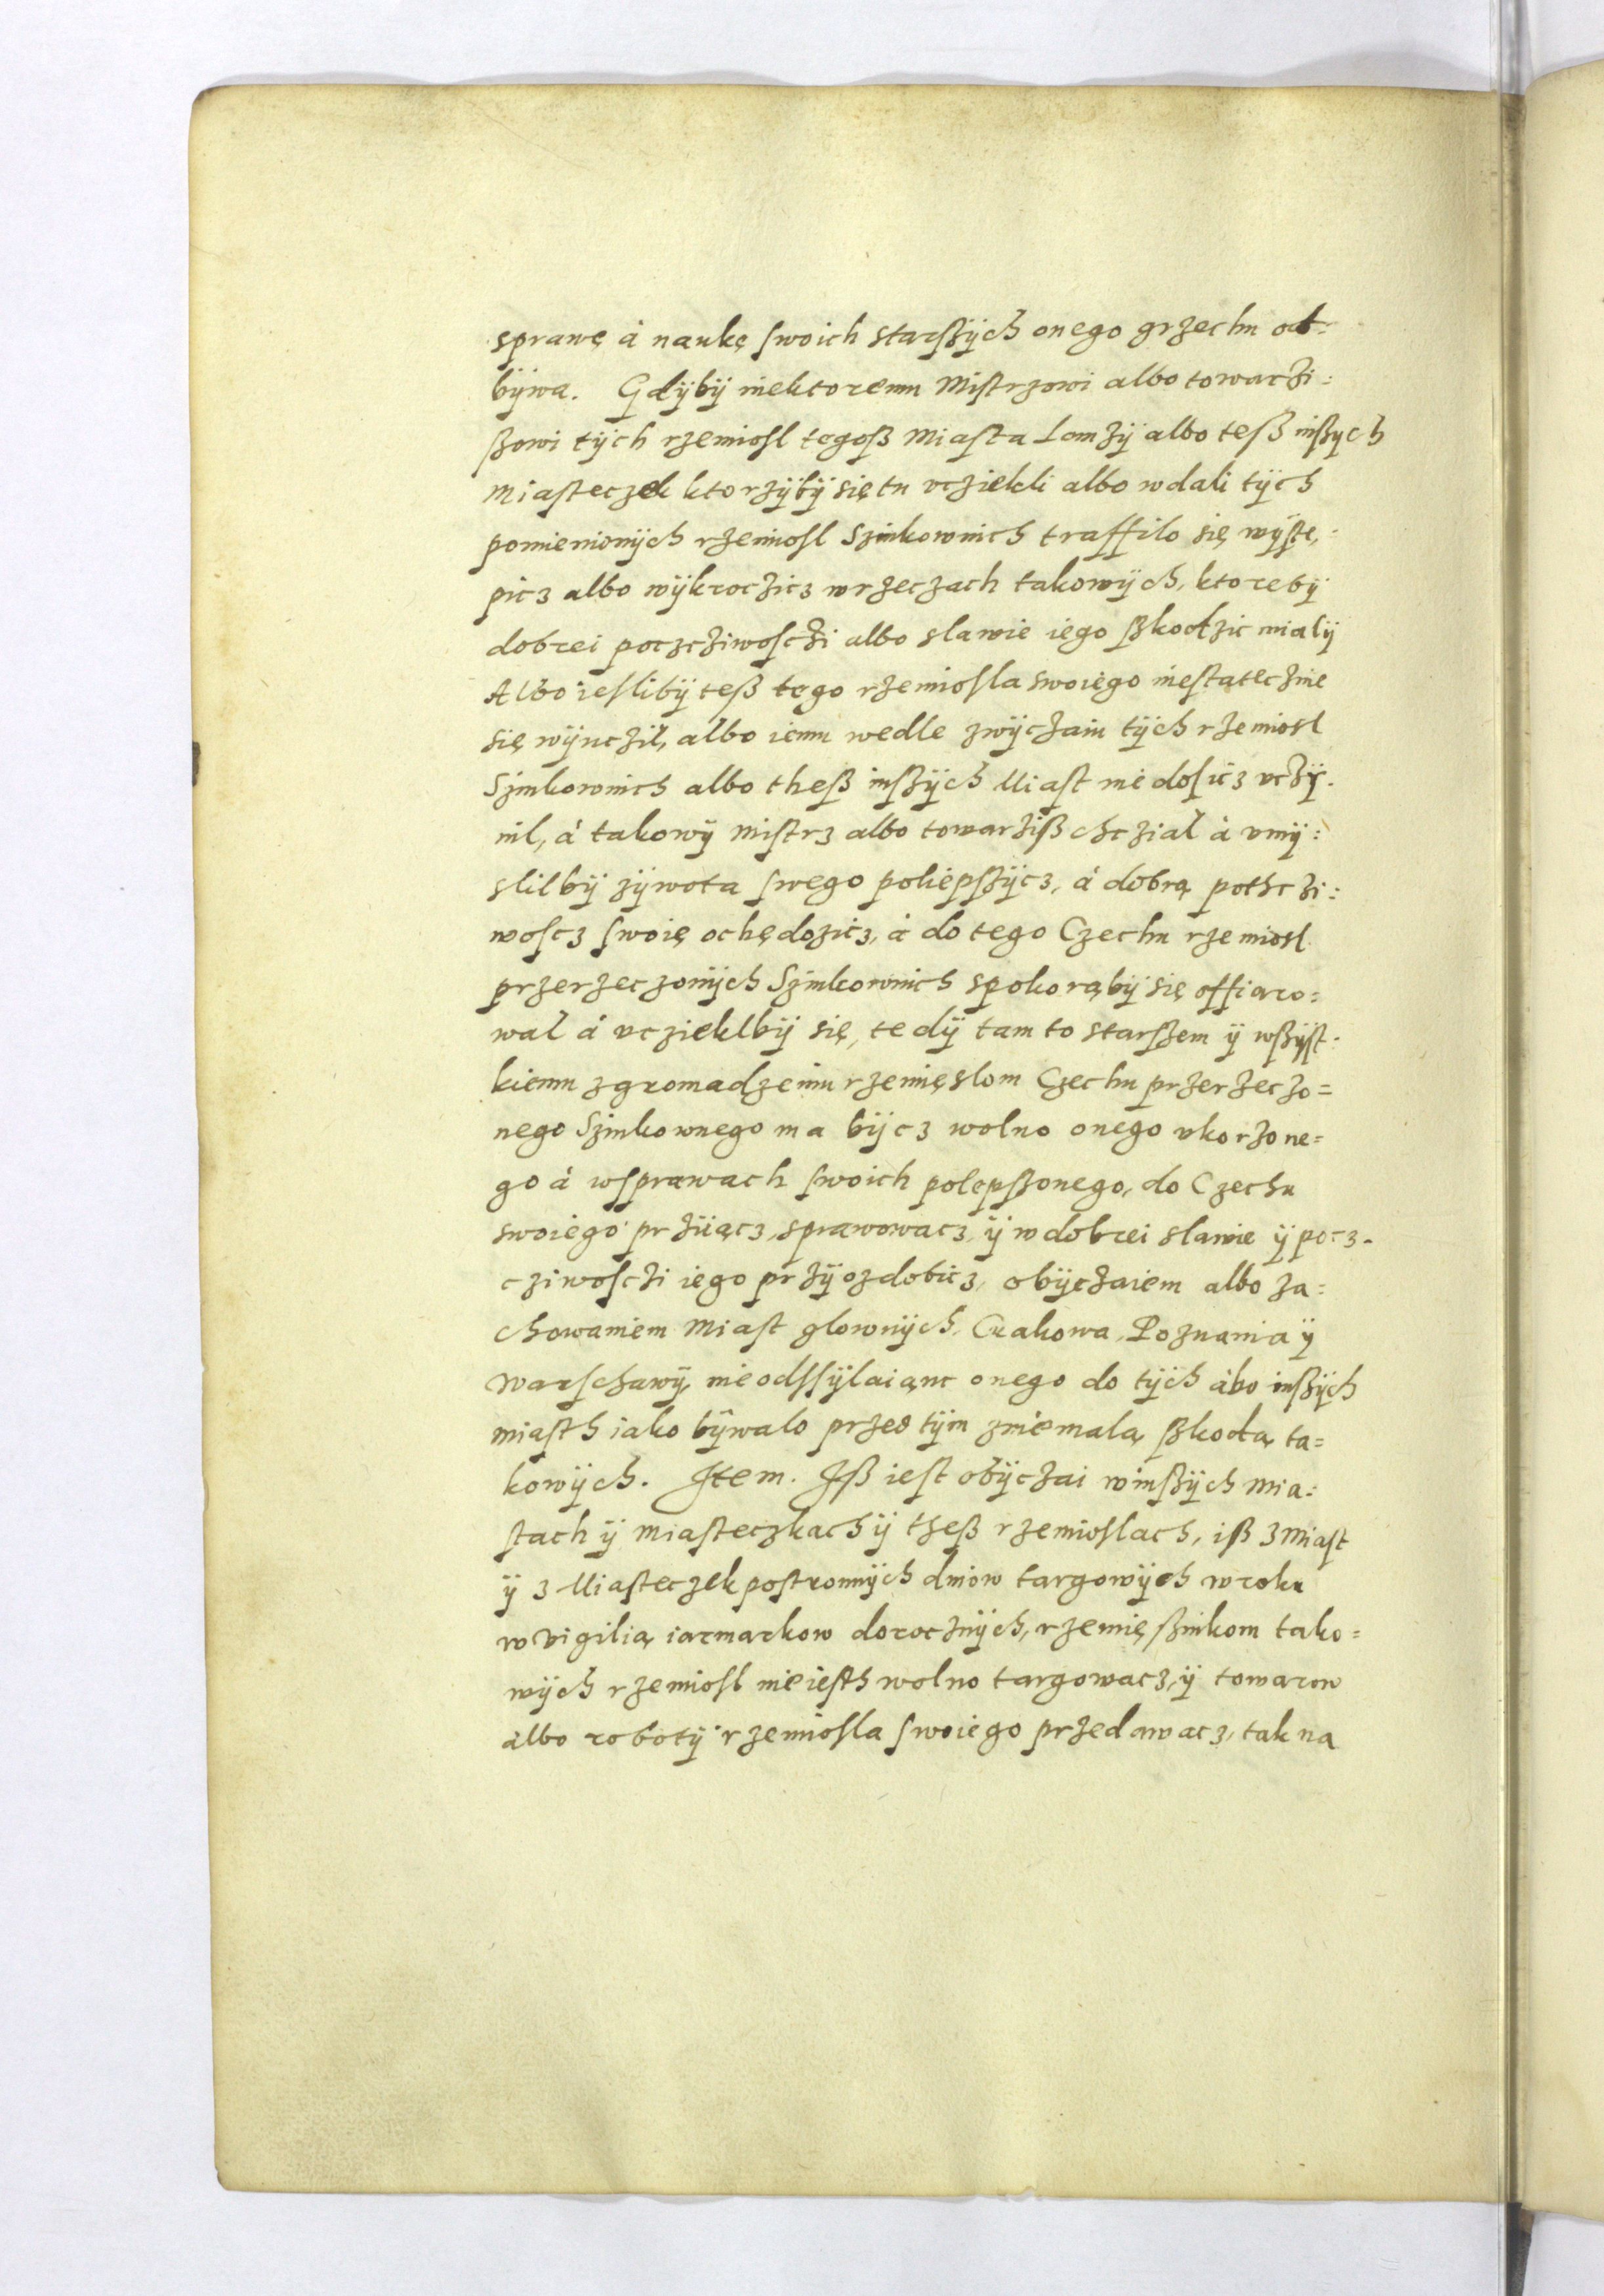 sprawę á naukę swoich starßÿch onego grzechu od:
bÿwa. Gdÿbÿ niektoremu Mistrzowi albo towarzi:
ßowi tÿch rzemiosl tegoß Miasta Lomzÿ albo teß inßych
Miasteczek ktorzÿbÿ się tu vcziekli albo wdali tÿch
pomienionÿch rzemiosl Szinkownich traffilo się wÿstę:
picz albo wÿkroczicz w rzeczach takowÿch, ktorebÿ
dobrei poczcziwosczi albo slawie iego ßkodzic mialÿ
Albo ieslibÿ teß tego rzemiosla swoiego niestatecznie
się wÿuczil, albo iemu wedle zwÿczaiu tÿch rzemiosl
Szinkownich albo theß inßzÿch Miast nie dosicz vczÿ:
nil, á takowÿ Mistrz albo towarziß chczial á vmÿ:
slilbÿ zÿwota swego poliepszÿcz, á dobrą pothczi:
woscz swoię ochędozicz, á do tego Czechu rzemiosl
przerzeczonÿch Szinkownich spokorąbÿ się offiaro:
wal á vczieklbÿ się, tedÿ tam to starßem ÿ wßÿst:
kiemu zgromadzeniu rzemięslom Czechu przerzeczo=
nego Szinkownego ma bÿcz wolno onego vkorzone=
go á wsprawach swoich polepßonego, do Czechu
swoiego prziiącz, sprawowacz, ÿ w dobrei slawie ÿ pocz-
cziwosczi iego przÿozdobicz, obÿczaiem albo za=
chowaniem Miast glownÿch, Crakowa, Poznania ÿ
Warschawÿ, nieodssÿlaiąnc onego do tÿch ábo inßÿch
miasth iako bÿwalo przed tÿm zniemalą ßkodą ta=
kowÿch. Item. Iß iest obÿczai winßÿch Mia:
stach ÿ Miasteczkach ÿ theß rzemioslach, iß z Miast
ÿ z Miasteczek postronnÿch dniow targowÿch w roku
w vigilią iarmarkow dorocznÿch, rzemięßnikom tako=
wÿch rzemiosl nie iesth wolno targowacz, ÿ towarow
álbo robotÿ rzemiosla swoiego przedawacz, tak na